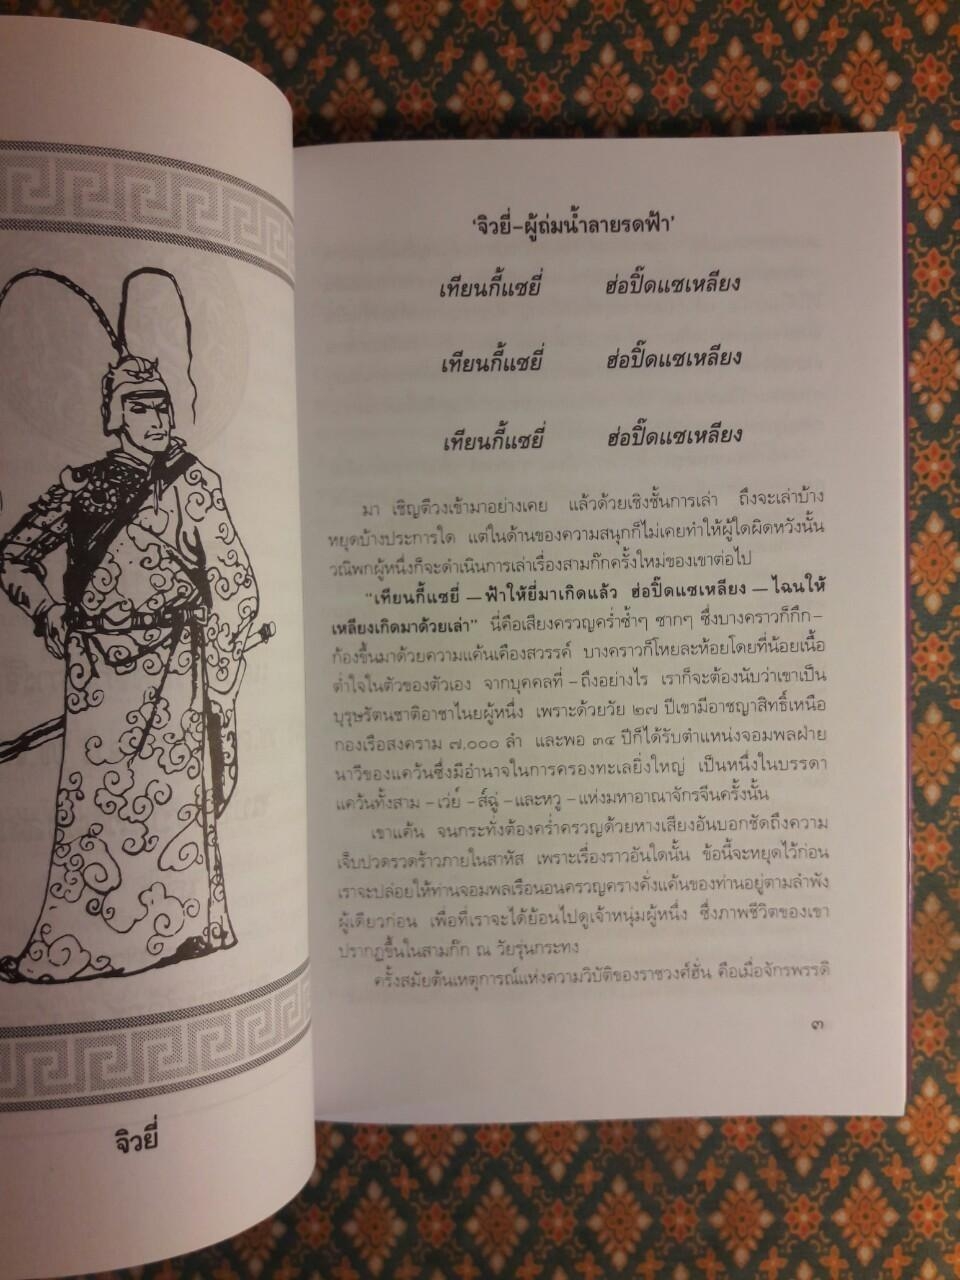 จิวยี่
'จิวยี่–ผู้ถ่มน้ำลายรดฟ้า'
เทียนกี้แซยี่ ฮ่อปิ๊ดแซเหลียง
เทียนกี้แซยี่ ฮ่อปิ๊ดแซเหลียง
เทียนกี้แซยี่ ฮ่อปิ๊ดแซเหลียง
มา เชิญตีวงเข้ามาอย่างเคย แล้วด้วยเชิงชั้นการเล่า ถึงจะเล่าบ้าง
หยุดบ้างประการใด แต่ในด้านของความสนุกก็ไม่เคยทำให้ผู้ใดผิดหวังนั้น
วณิพกผู้หนึ่งก็จะดำเนินการเล่าเรื่องสามก๊กครั้งใหม่ของเขาต่อไป
"เทียนกี้แซยี่ — ฟ้าให้ยี่มาเกิดแล้ว ฮ่อปิ๊ดแซเหลียง — ไฉนให้
เหลียงเกิดมาด้วยเล่า" นี่คือเสียงครวญคร่ำซ้ำๆ ซากๆ ซึ่งบางคราวก็กึก–
ก้องขึ้นมาด้วยความแค้นเคืองสวรรค์ บางคราวก็โหยละห้อยโดยที่น้อยเนื้อ
ต่ำใจในตัวของตัวเอง จากบุคคลที่ – ถึงอย่างไร เราก็จะต้องนับว่าเขาเป็น
บุรุษรัตนชาติอาชาไนยผู้หนึ่ง เพราะด้วยวัย ๒๗ ปีเขามีอาชญาสิทธิ์เหนือ
กองเรือสงคราม ๗,๐๐๐ ลำ และพอ ๓๔ ปีก็ได้รับตำแหน่งจอมพลฝ่าย
นาวีของแคว้นซึ่งมีอำนาจในการครองทะเลยิ่งใหญ่ เป็นหนึ่งในบรรดา
แคว้นทั้งสาม – เว่ย์ – ส์ฉู่ – และหวู – แห่งมหาอาณาจักรจีนครั้งนั้น
เขาแค้น จนกระทั่งต้องคร่ำครวญด้วยหางเสียงอันบอกชัดถึงความ
เจ็บปวดรวดร้าวภายในสาหัส เพราะเรื่องราวอันใดนั้น ข้อนี้จะหยุดไว้ก่อน
เราจะปล่อยให้ท่านจอมพลเรือนอนครวญครางคั่งแค้นของท่านอยู่ตามลำพัง
ผู้เดียวก่อน เพื่อที่เราจะได้ย้อนไปดูเจ้าหนุ่มผู้หนึ่ง ซึ่งภาพชีวิตของเขา
ปรากฏขึ้นในสามก๊ก ณ วัยรุ่นกระทง
ครั้งสมัยต้นเหตุการณ์แห่งความวิบัติของราชวงศ์ฮั่น คือเมื่อจักรพรรดิ
๓